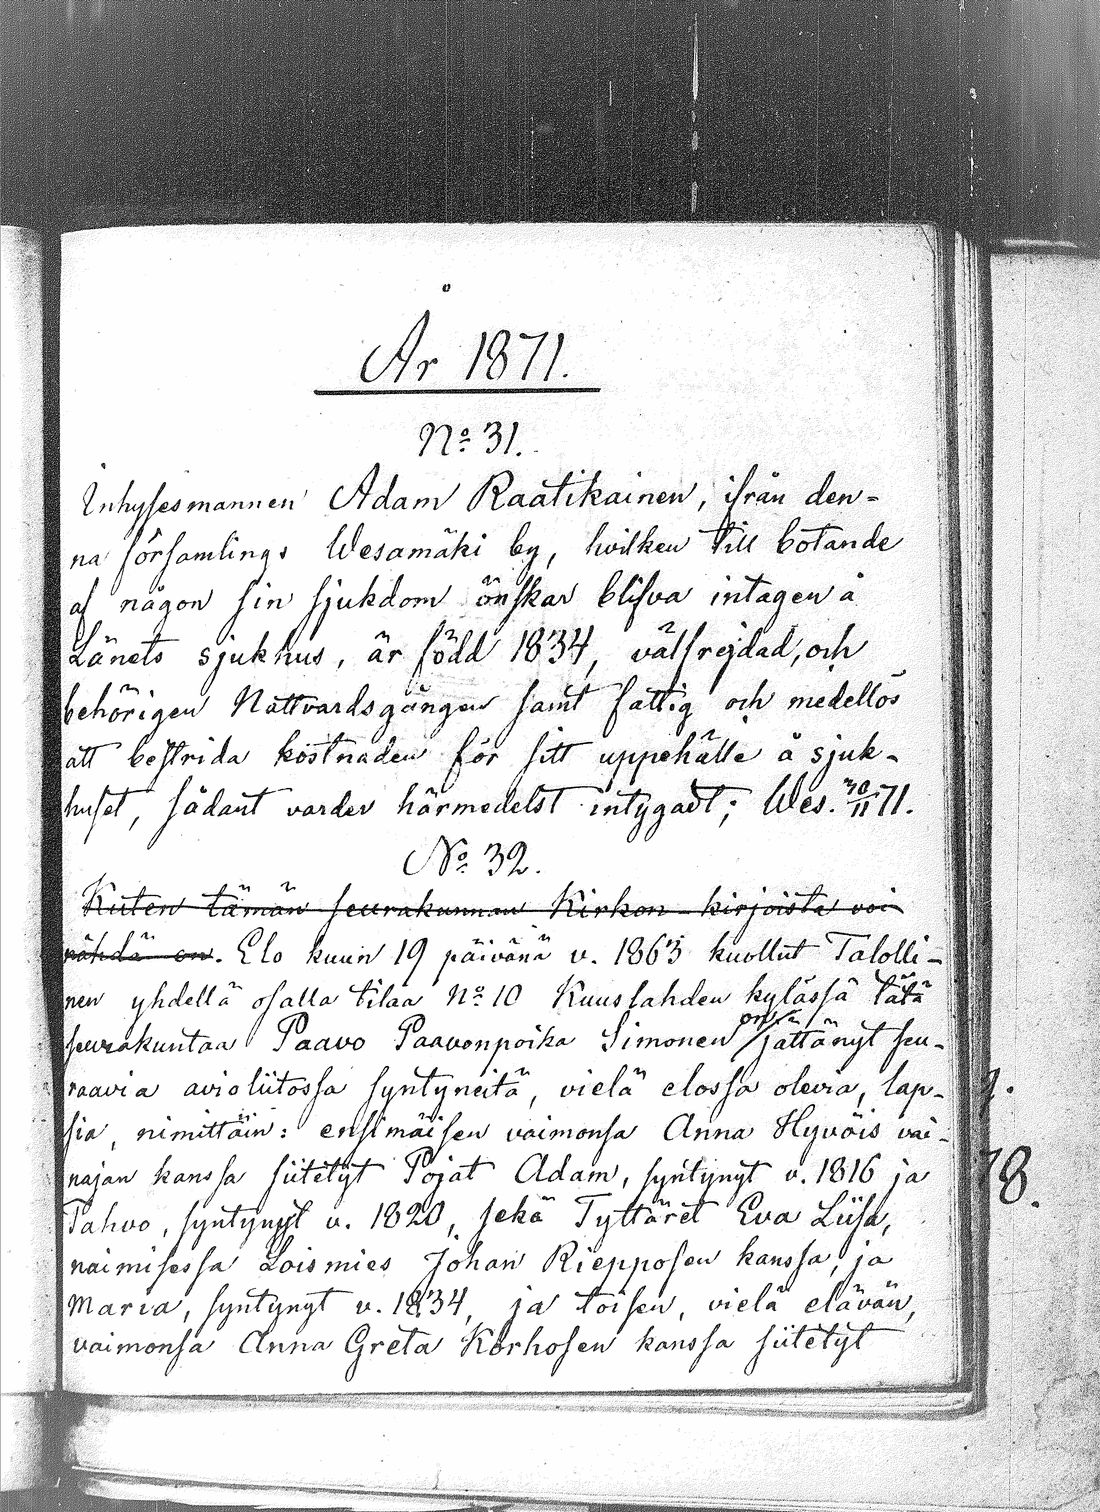 År 1871.
No 31.
Inhysesmannen Adam Raatikainen, ifrån den-
na församlings Wesamäki by, hvilken till botande
af någon sin sjukdom önskar blifva intagen å
Länets sjukhus, är född 1834, välfrejdad, och
behörigen Nattvardsgången samt fattig och medellös
att bestrida kostnaden för sitt uppehälle å sjuk-
huset, sådant varder härmedelst intygadt; Wes. 30/11 71.
No 32.
Kuten tämän seurakunnan Kirkon kirjoista voi
nähdä on. Elo kuun 19 päivänä v. 1863 kuollut Talolli-
nen yhdellä osalla tilaa No 10 Kuuslahden kylässä tätä
seurakuntaa Paavo Paavonpoika Simonen on jättänyt seu-
raavia avioliitossa syntyneitä, vielä elossa olevia, lap-
sia, nimittäin: ensimäisen vaimonsa Anna Hyvöis vai-
najan kanssa siitetyt Pojat Adam, syntynyt v. 1816 ja
Pahvo, syntynyt v. 1820, sekä Tyttäret Eva Liisa,
naimisessa Loismies Johan Riepposen kanssa, ja
Maria, syntynyt v. 1834, ja toisen, vielä elävän,
vaimonsa Anna Greta Korhosen kanssa siitetyt
18.